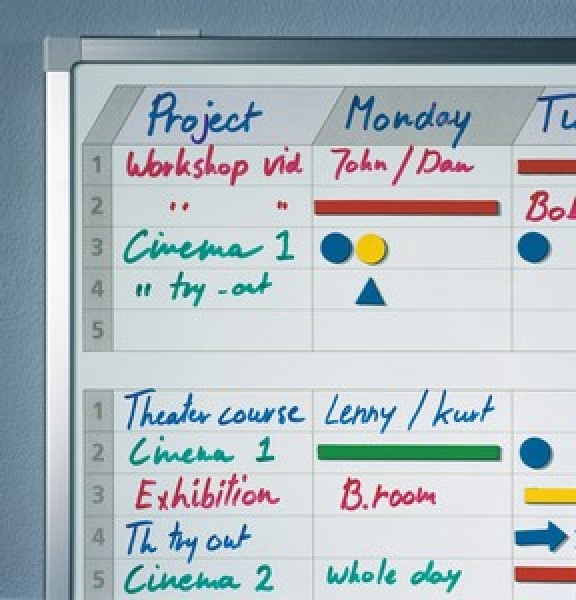 Project Monday Tu
1 Workshop vid John / Dan
2 " " Bob
3 Cinema 1
4 " try-out
5
1 Theater course Lenny / Kurt
2 Cinema 1
3 Exhibition B.room
4 Th try out
5 Cinema 2 whole day